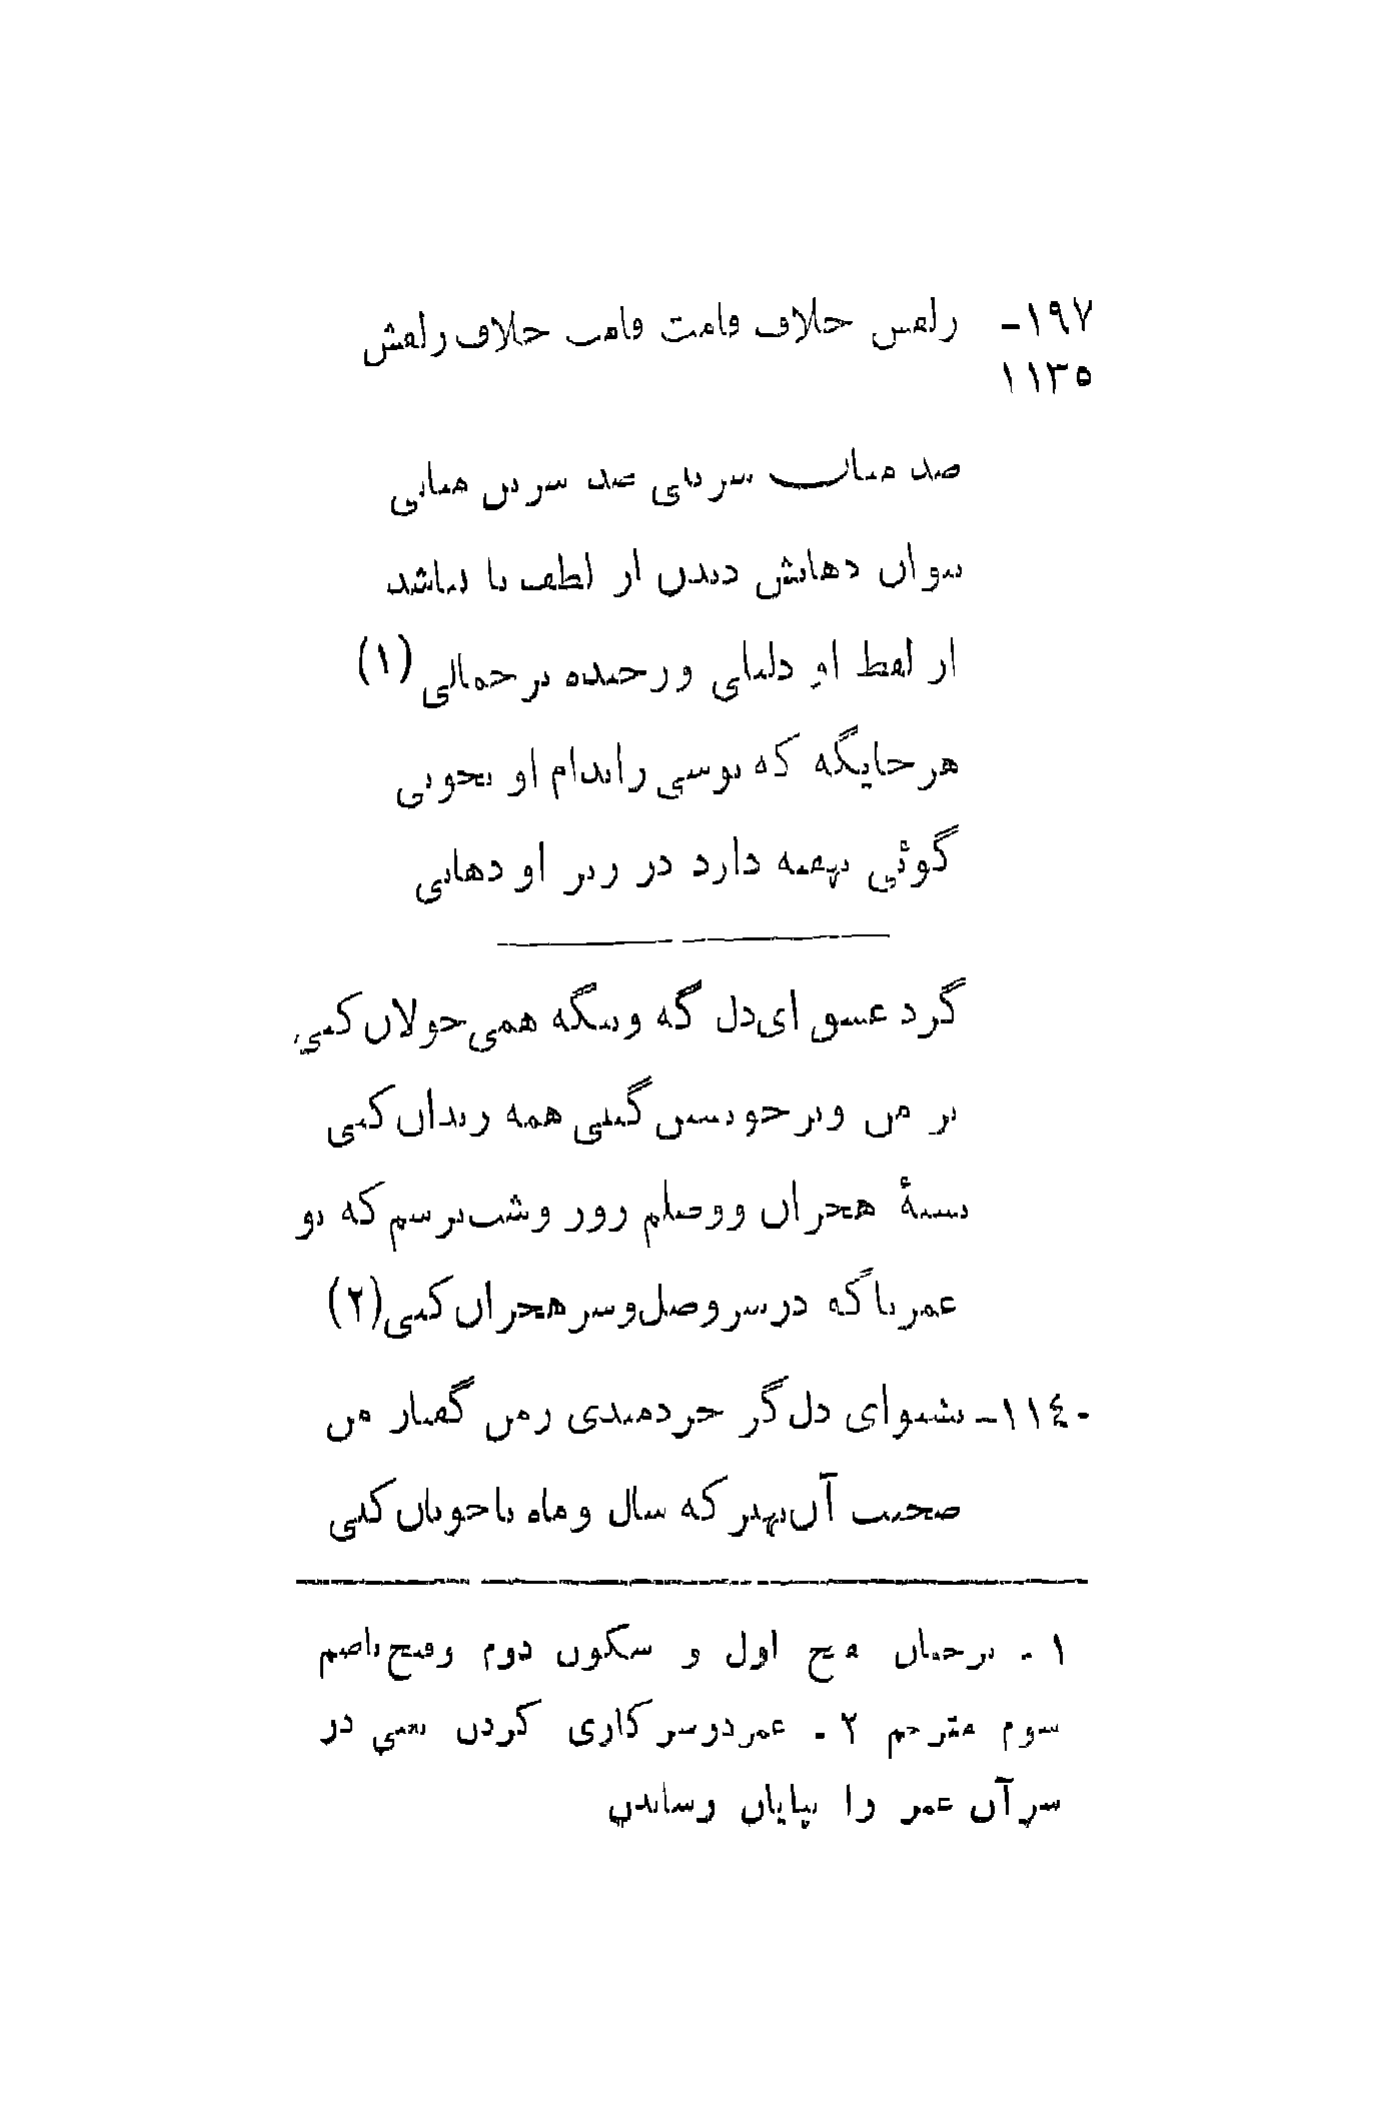 ۱۹۷- زلفش خلاف قامت قامت خلاف زلفش
۱۱۳۵
صد میان سرینی صد سرین میانی
نتوان دهانش دیدن از لطف تا نباشد
از لفظ او دلیلی وز خنده ترجمانی (۱)
هر جایگه که بوسی ز اندام او بجویی
گوئی نهفته دارد در زیر او دهانی
گرد عشق ای‌دل گه وبیگه همی جولان کنی
بر من وبر خویشتن گیتی همه زندان کنی
بستهٔ هجران ووصلم روز وشب ترسم که تو
عمر ناگه در سر وصل‌وسر هجران کنی (۲)
۱۱۴۰- بشنو ای دل گر خردمندی زمن گفتار من
صحبت آن بهتر که سال و ماه با خوبان کنی
۱ - ترجمان فتح اول و سکون دوم وفتح یاضم
سوم مترجم ۲ - عمر درسر کاری کردن یعنی در
سر آن عمر را بپایان رساندن